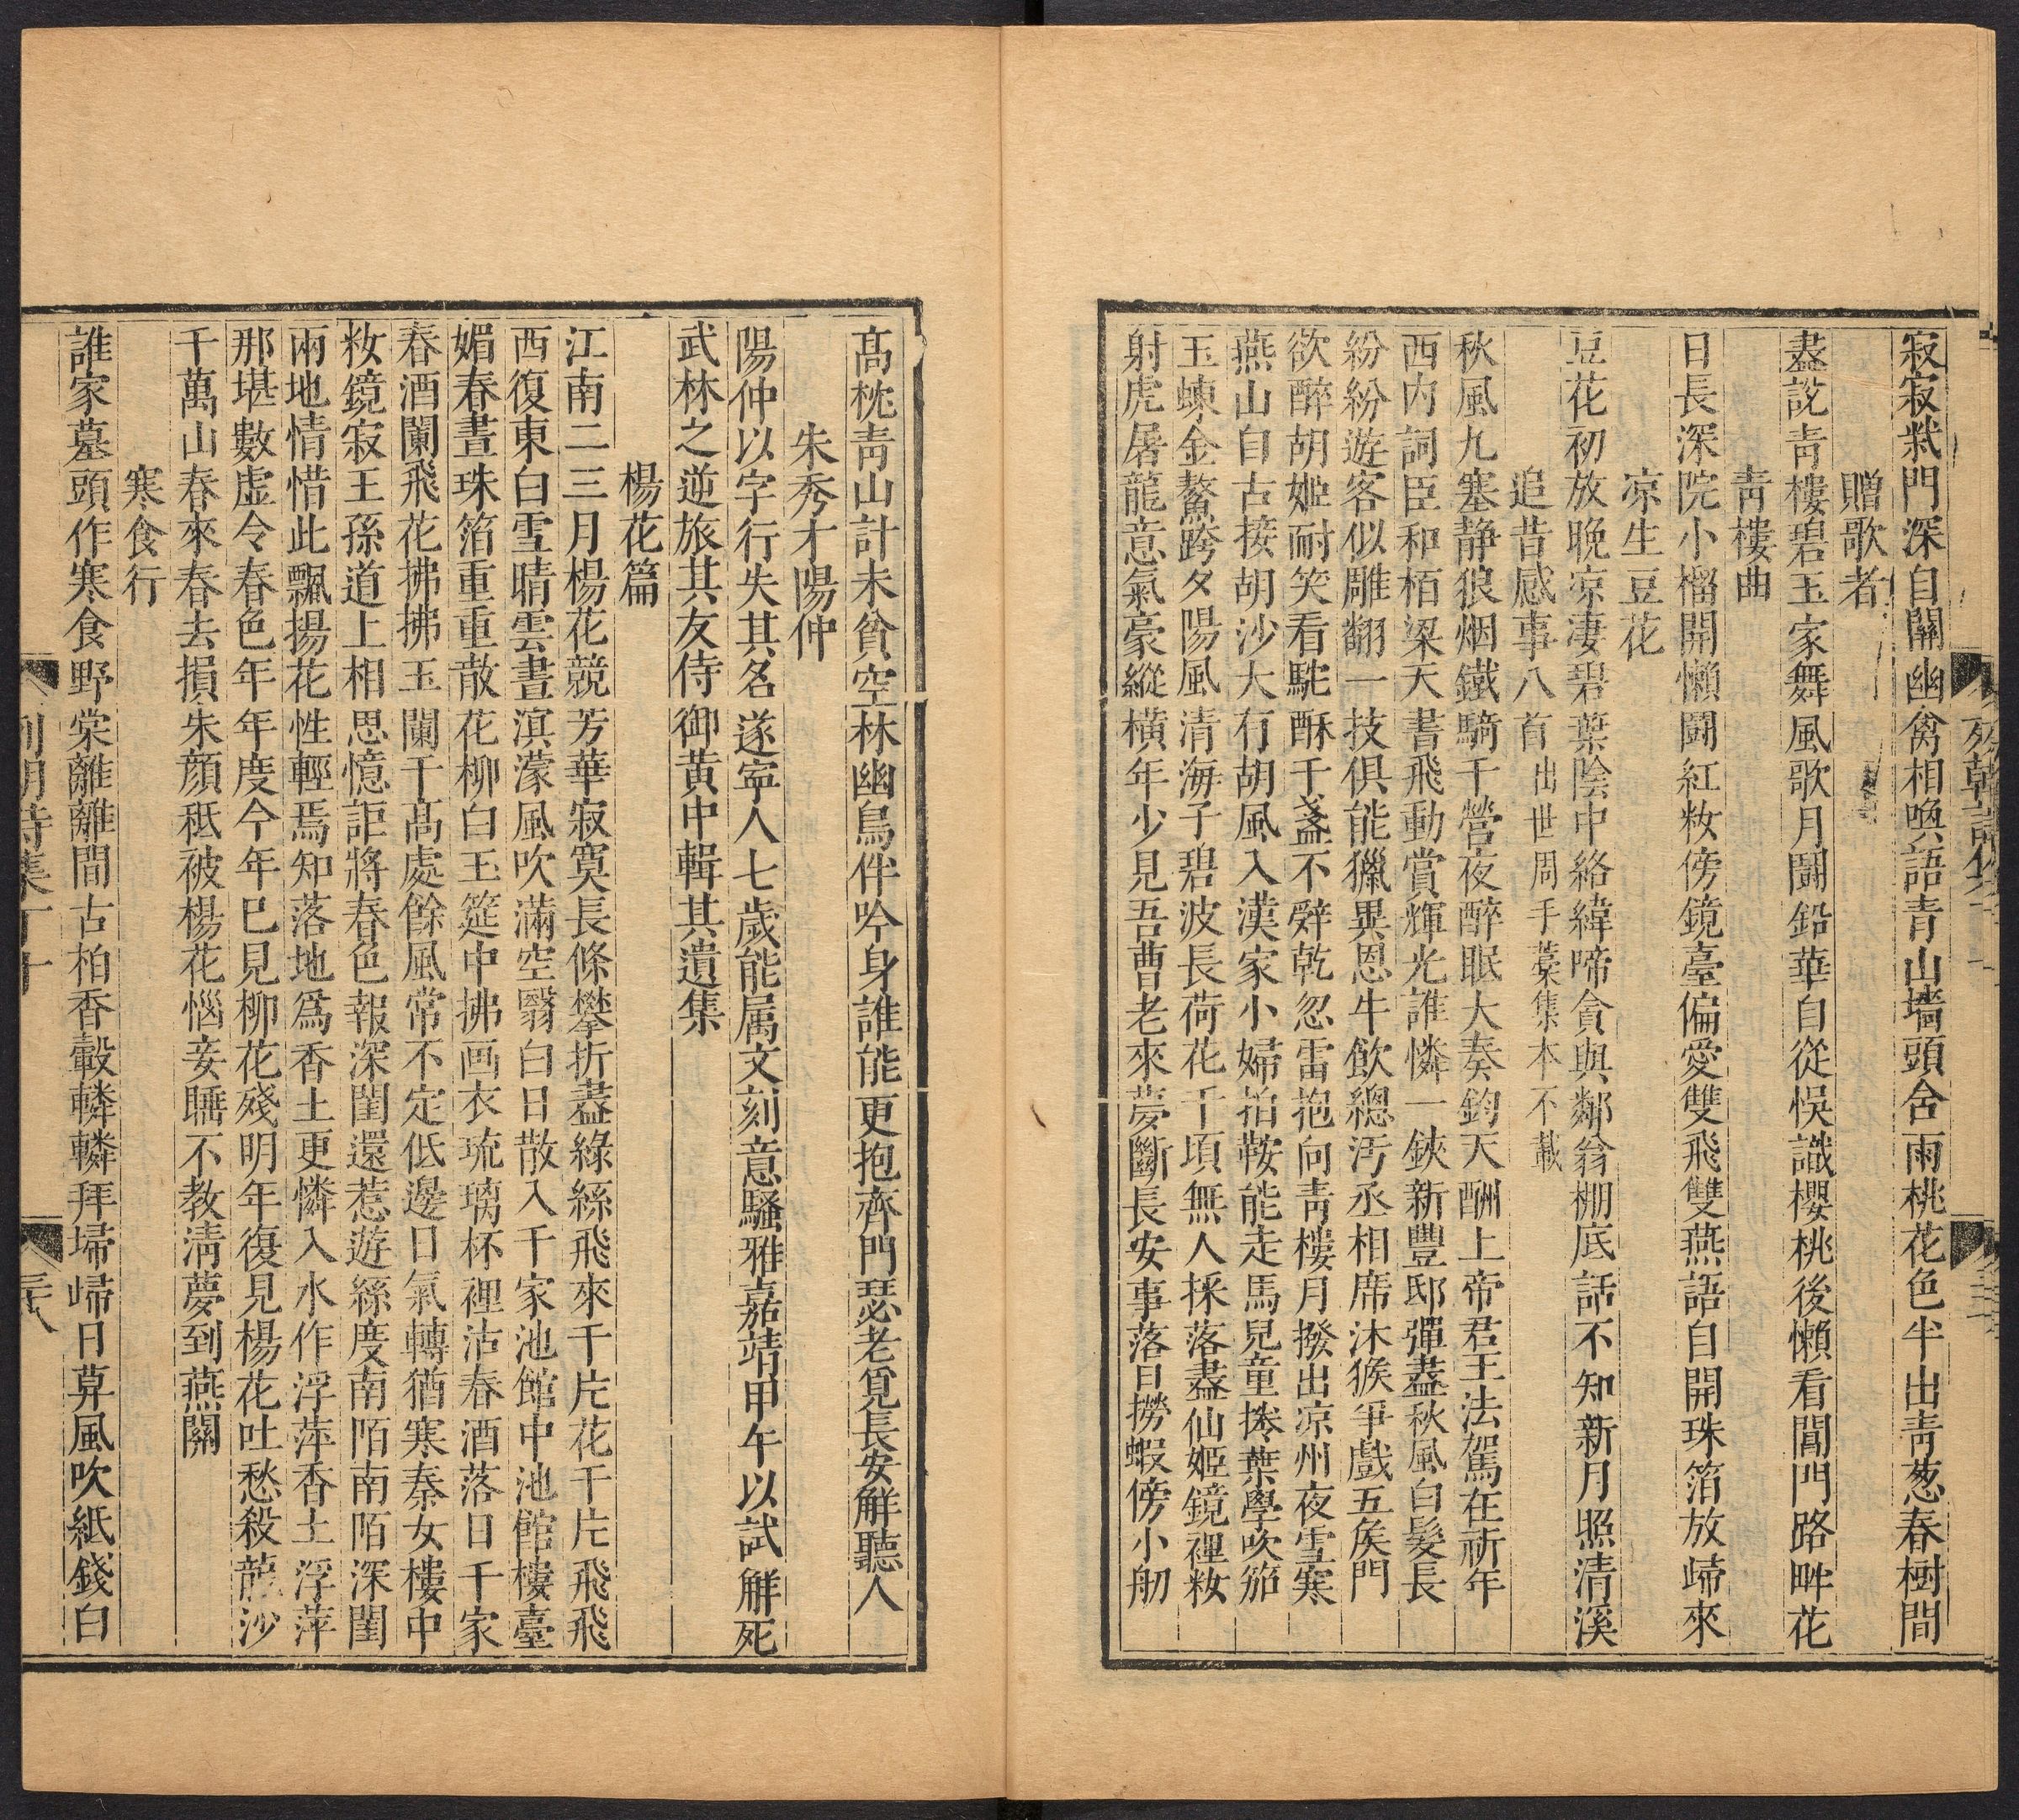 寂寂柴門深自關幽禽相喚語青山墻頭含雨桃花色半出青葱春樹間
贈歌者
盡說青樓碧玉家舞風歌月鬪鉛華自從悞識櫻桃後懶看閶門路畔花
靑樓曲
日長深院小榴開懶鬪紅籹傍鏡臺偏愛雙飛雙燕語自開珠箔放歸來
凉生豆花
豆花初放晚凉凄碧葉陰中絡緯啼貪與鄰翁棚底話不知新月照清溪
追昔感事八首出世周手藁集本不載
秋風九塞静狼烟鐵騎千營夜醉眠大奏鈞天酬上帝君王法駕在祈年
西内詞臣和栢梁天書飛動賞輝光誰憐一鋏新豐邸彈盡秋風白髮長
紛紛遊客似雕翩一技俱能獵異恩牛飲總汚丞相席沐猴爭戲五矦門
欲醉胡姬耐笑看駝酥千盞不辤乾忽雷抱向靑樓月撥出凉州夜雪寒
燕山自古接胡沙大有胡風入漢家小婦拍鞍能走馬兒童捲葉學吹笳
玉蝀金鰲跨夕陽風清海子碧波長荷花千頃無人採落盡仙姬鏡裡籹
射虎屠龍意氣豪縱橫年少見吾曹老來夢斷長安事落日撈蝦傍小舠
高枕靑山計未貧空林幽鳥伴吟身誰能更抱齊門瑟老覓長安觧聽人
朱秀才陽仲
陽仲以字行失其名遂寧人七歲能属文刻意騷雅嘉靖甲午以試觧死
武林之逆旅其友侍御黄中輯其遺集
楊花篇
江南二三月楊花競芳華寂寞長條攀折盡綠絲飛來千片花千片飛飛
西復東白雪晴雲晝溟濛風吹滿空翳白日散入千家池館中池館樓臺
媚春晝珠箔重重散花柳白玉筵中拂画衣琉璃杯裡沽春酒落日千家
春酒闌飛花拂拂玉闌干高處餘風常不定低邊日氣轉猶寒秦女樓中
籹鏡寂王孫道上相思憶詎將春色報深閨還惹遊絲度南陌南陌深閨
兩地情惜此飄揚花性輕焉知落地爲香土更憐入水作浮萍香土浮萍
那堪數虚令春色年年度今年已見柳花殘明年復見楊花吐愁殺龍沙
千萬山春來春去損朱顔秪被楊花惱妾睡不教淸夢到燕關
寒食行
誰家墓頭作寒食野棠離離間古柏香轂轔轔拜埽歸日莫風吹紙錢白